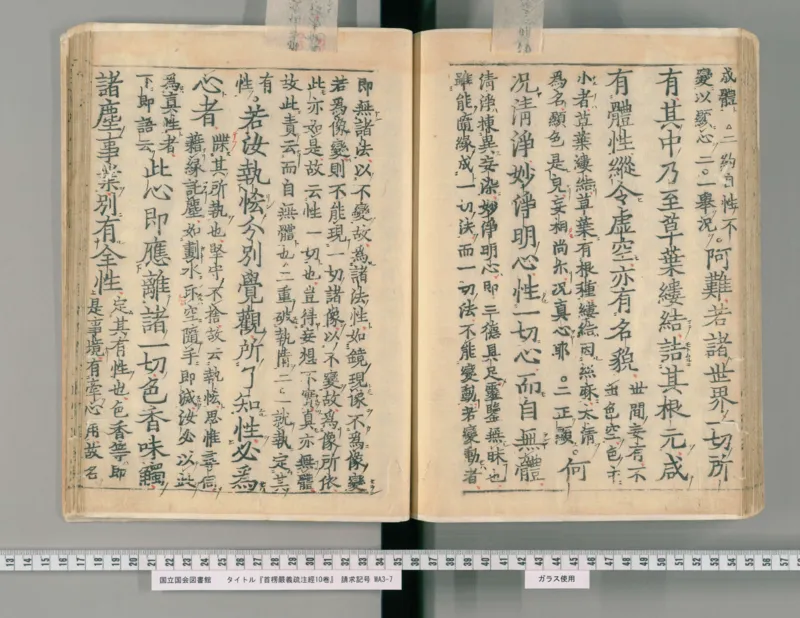 成體 二約自性不
變以顯心二。一舉況。
阿難若諸世界一切所
有其中乃至草葉縷結詰其根元咸
有體性縱令虛空亦有名貌
世間有不
空色
小者草葉縷結草葉有根種縷結因絲麻太清
為名顯色是妄相尚亦况真心耶 二正顯
何
况清淨妙淨明心性一切心而自無體
清淨揀異妄染妙淨明心即三德具足靈鑒無昧也
雖能隨緣成一切法而一切法不能變動若變動者
即無諸法以不變故為諸法性如鏡現像不為像變
若為像變則不能現一切諸像以不變故為像所依
此亦如是故云性一切也豈得妄想下真亦無體
故此責云而自無體也二重破執情二一就執定其
有
性。
若汝執悋分別覺觀所了知性必為
心者
牒其所執也堅中不捨故云執悋思惟尋伺
藉緣託塵如劃水空隨手即滅汝必以此
為真性者
下即語云
此心即應離諸一切色香味觸
諸塵事業別有全性
定其有性也色香等即
是事境有牽心用故名
国立国会図書館 タイトル『首楞嚴義疏注經10巻』 請求記号 WA3-7
ガラス使用
13 14 15 16 17 18 19 20 21 22 23 24 25 26 27 28 29 30 31 32 33 34 35 36 37 38 39 40 41 42 43 44 45 46 47 48 49 50 51 52 53 54 55 56 57